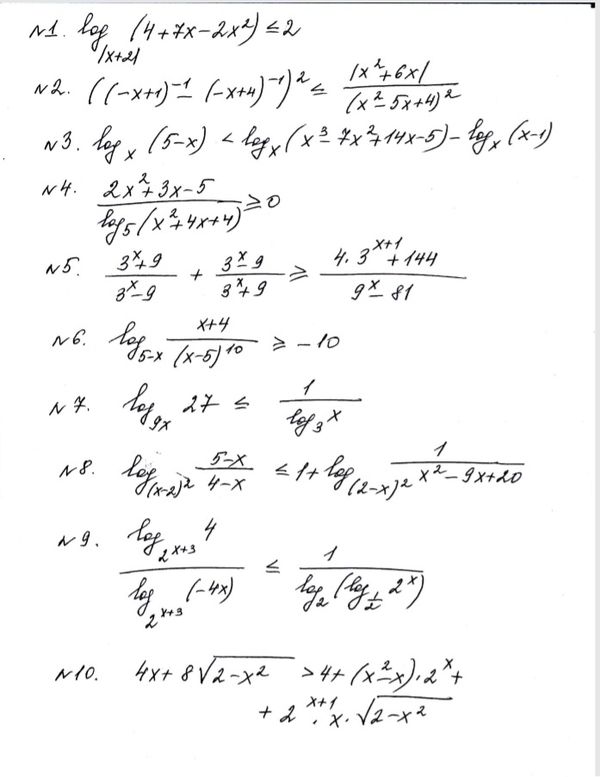 №1. log_|x+2| (4+7x−2x²) ≤ 2
№2. ((−x+1)⁻¹ − (−x+4)⁻¹)² ≤ |x²+6x| / (x²−5x+4)²
№3. log_x (5−x) < log_x (x³−7x²+14x−5) − log_x (x−1)
№4. (2x²+3x−5) / (log_5 (x²+4x+4)) ≥ 0
№5. (3^x+9) / (3^x−9) + (3^x−9) / (3^x+9) ≥ (4·3^(x+1)+144) / (9^x−81)
№6. log_(5−x) (x+4) / (x−5)^10 ≥ −10
№7. log_(9x) 27 ≤ 1 / (log_3 x)
№8. log_(x−2)² (5−x) / (4−x) ≤ 1+log_(2−x)² 1 / (x²−9x+20)
№9. (log_(2^(x+3)) 4) / (log_(2^(x+3)) (−4x)) ≤ 1 / (log_2 (log_(1/2) 2^x))
№10. 4x+8√(2−x²) > 4+(x²−x)·2^x +
+ 2^(x+1)·x·√(2−x²)